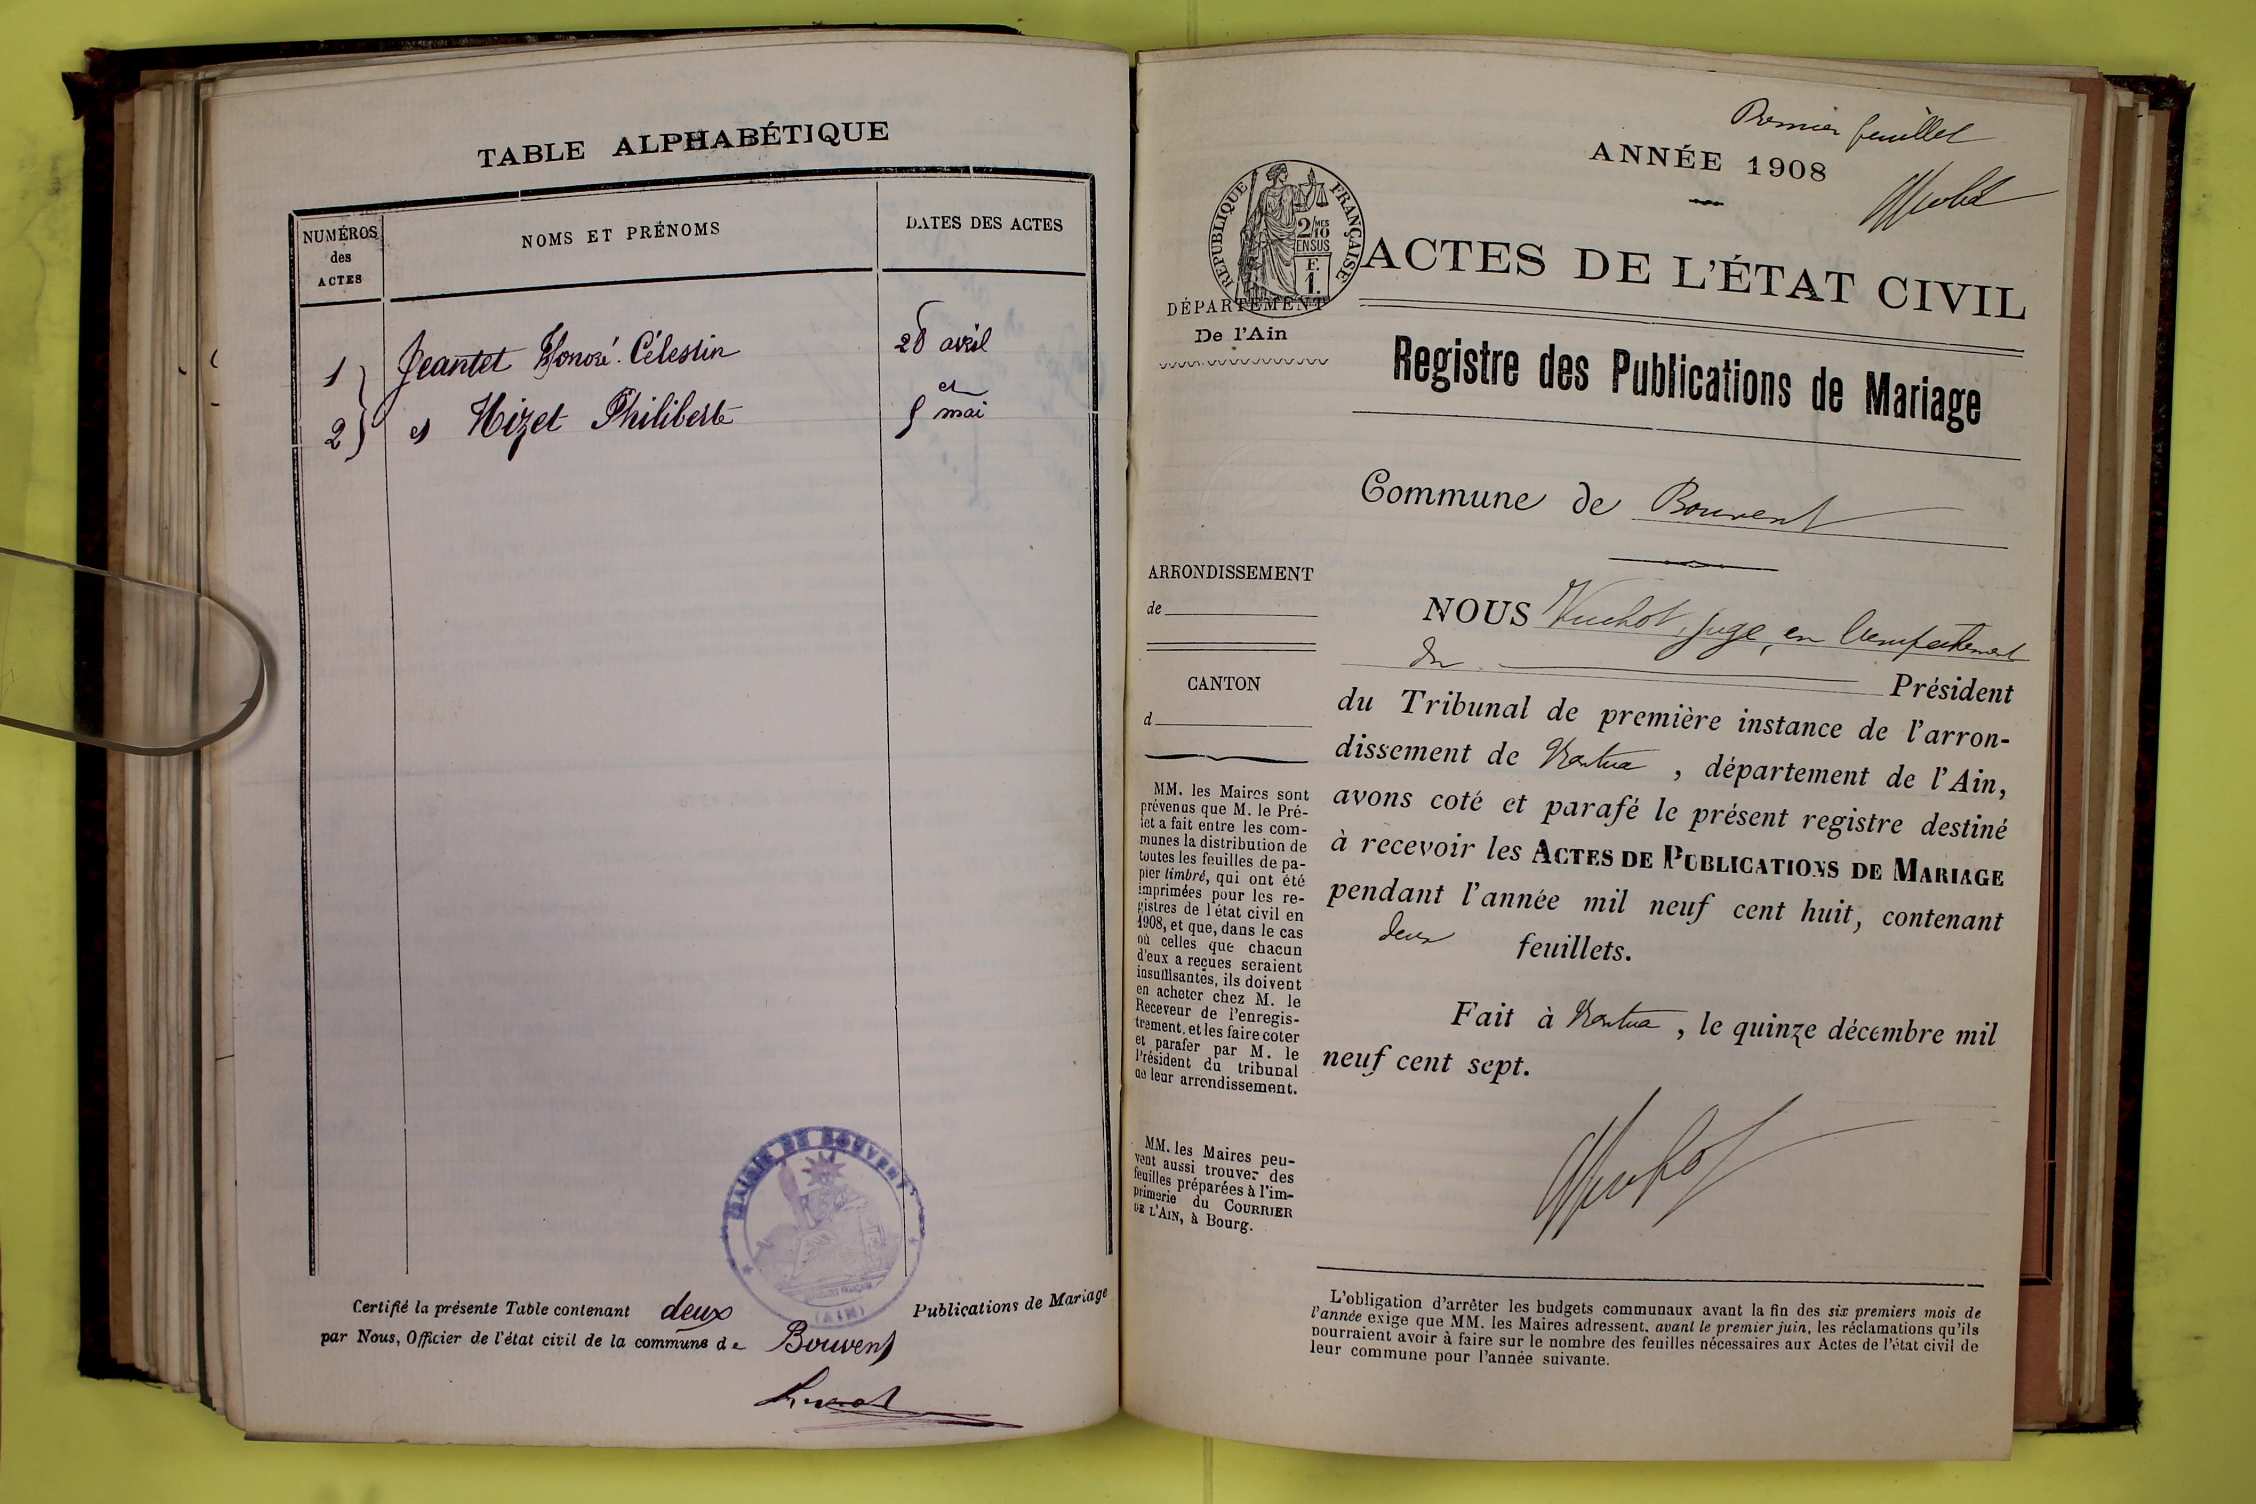 TABLE ALPHABÉTIQUE
NUMÉROS
des
ACTES
NOMS ET PRÉNOMS
DATES DES ACTES
1
Jeantet Honoré Célestin
28 avril
et
2
et Mizet Philiberte
5 mai
MAIRIE DE BOUVENT
(AIN)
Certifié la présente Table contenant deux Publications de Mariage
par Nous, Officier de l'état civil de la commune de Bouvent
Premier feuillet
ANNÉE 1908
Vuchot
REPUBLIQUE FRANÇAISE
2/10 MES
EN SUS
F.
1.
ACTES DE L'ÉTAT CIVIL
DÉPARTEMENT
De l'Ain
Registre des Publications de Mariage
Commune de Bouvent
ARRONDISSEMENT
de
CANTON
d
MM. les Maires sont
prévenus que M. le Pré-
fet a fait entre les com-
munes la distribution de
toutes les feuilles de pa-
pier timbré, qui ont été
imprimées pour les re-
gistres de l'état civil en
1908, et que, dans le cas
où celles que chacun
d'eux a reçues seraient
insuffisantes, ils doivent
en acheter chez M. le
Receveur de l'enregis-
trement, et les faire coter
et parafer par M. le
Président du tribunal
de leur arrondissement.
MM. les Maires peu-
vent aussi trouver des
feuilles préparées à l'im-
primerie du COURRIER
DE L'AIN, à Bourg.
NOUS Vuchot, juge, en l'empêchement
du Président
du Tribunal de première instance de l'arron-
dissement de Nantua, département de l'Ain,
avons coté et parafé le présent registre destiné
à recevoir les ACTES DE PUBLICATIONS DE MARIAGE
pendant l'année mil neuf cent huit, contenant
deux feuillets.
Fait à Nantua, le quinze décembre mil
neuf cent sept.
Vuchot
L'obligation d'arrêter les budgets communaux avant la fin des six premiers mois de
l'année exige que MM. les Maires adressent, avant le premier juin, les réclamations qu'ils
pourraient avoir à faire sur le nombre des feuilles nécessaires aux Actes de l'état civil de
leur commune pour l'année suivante.